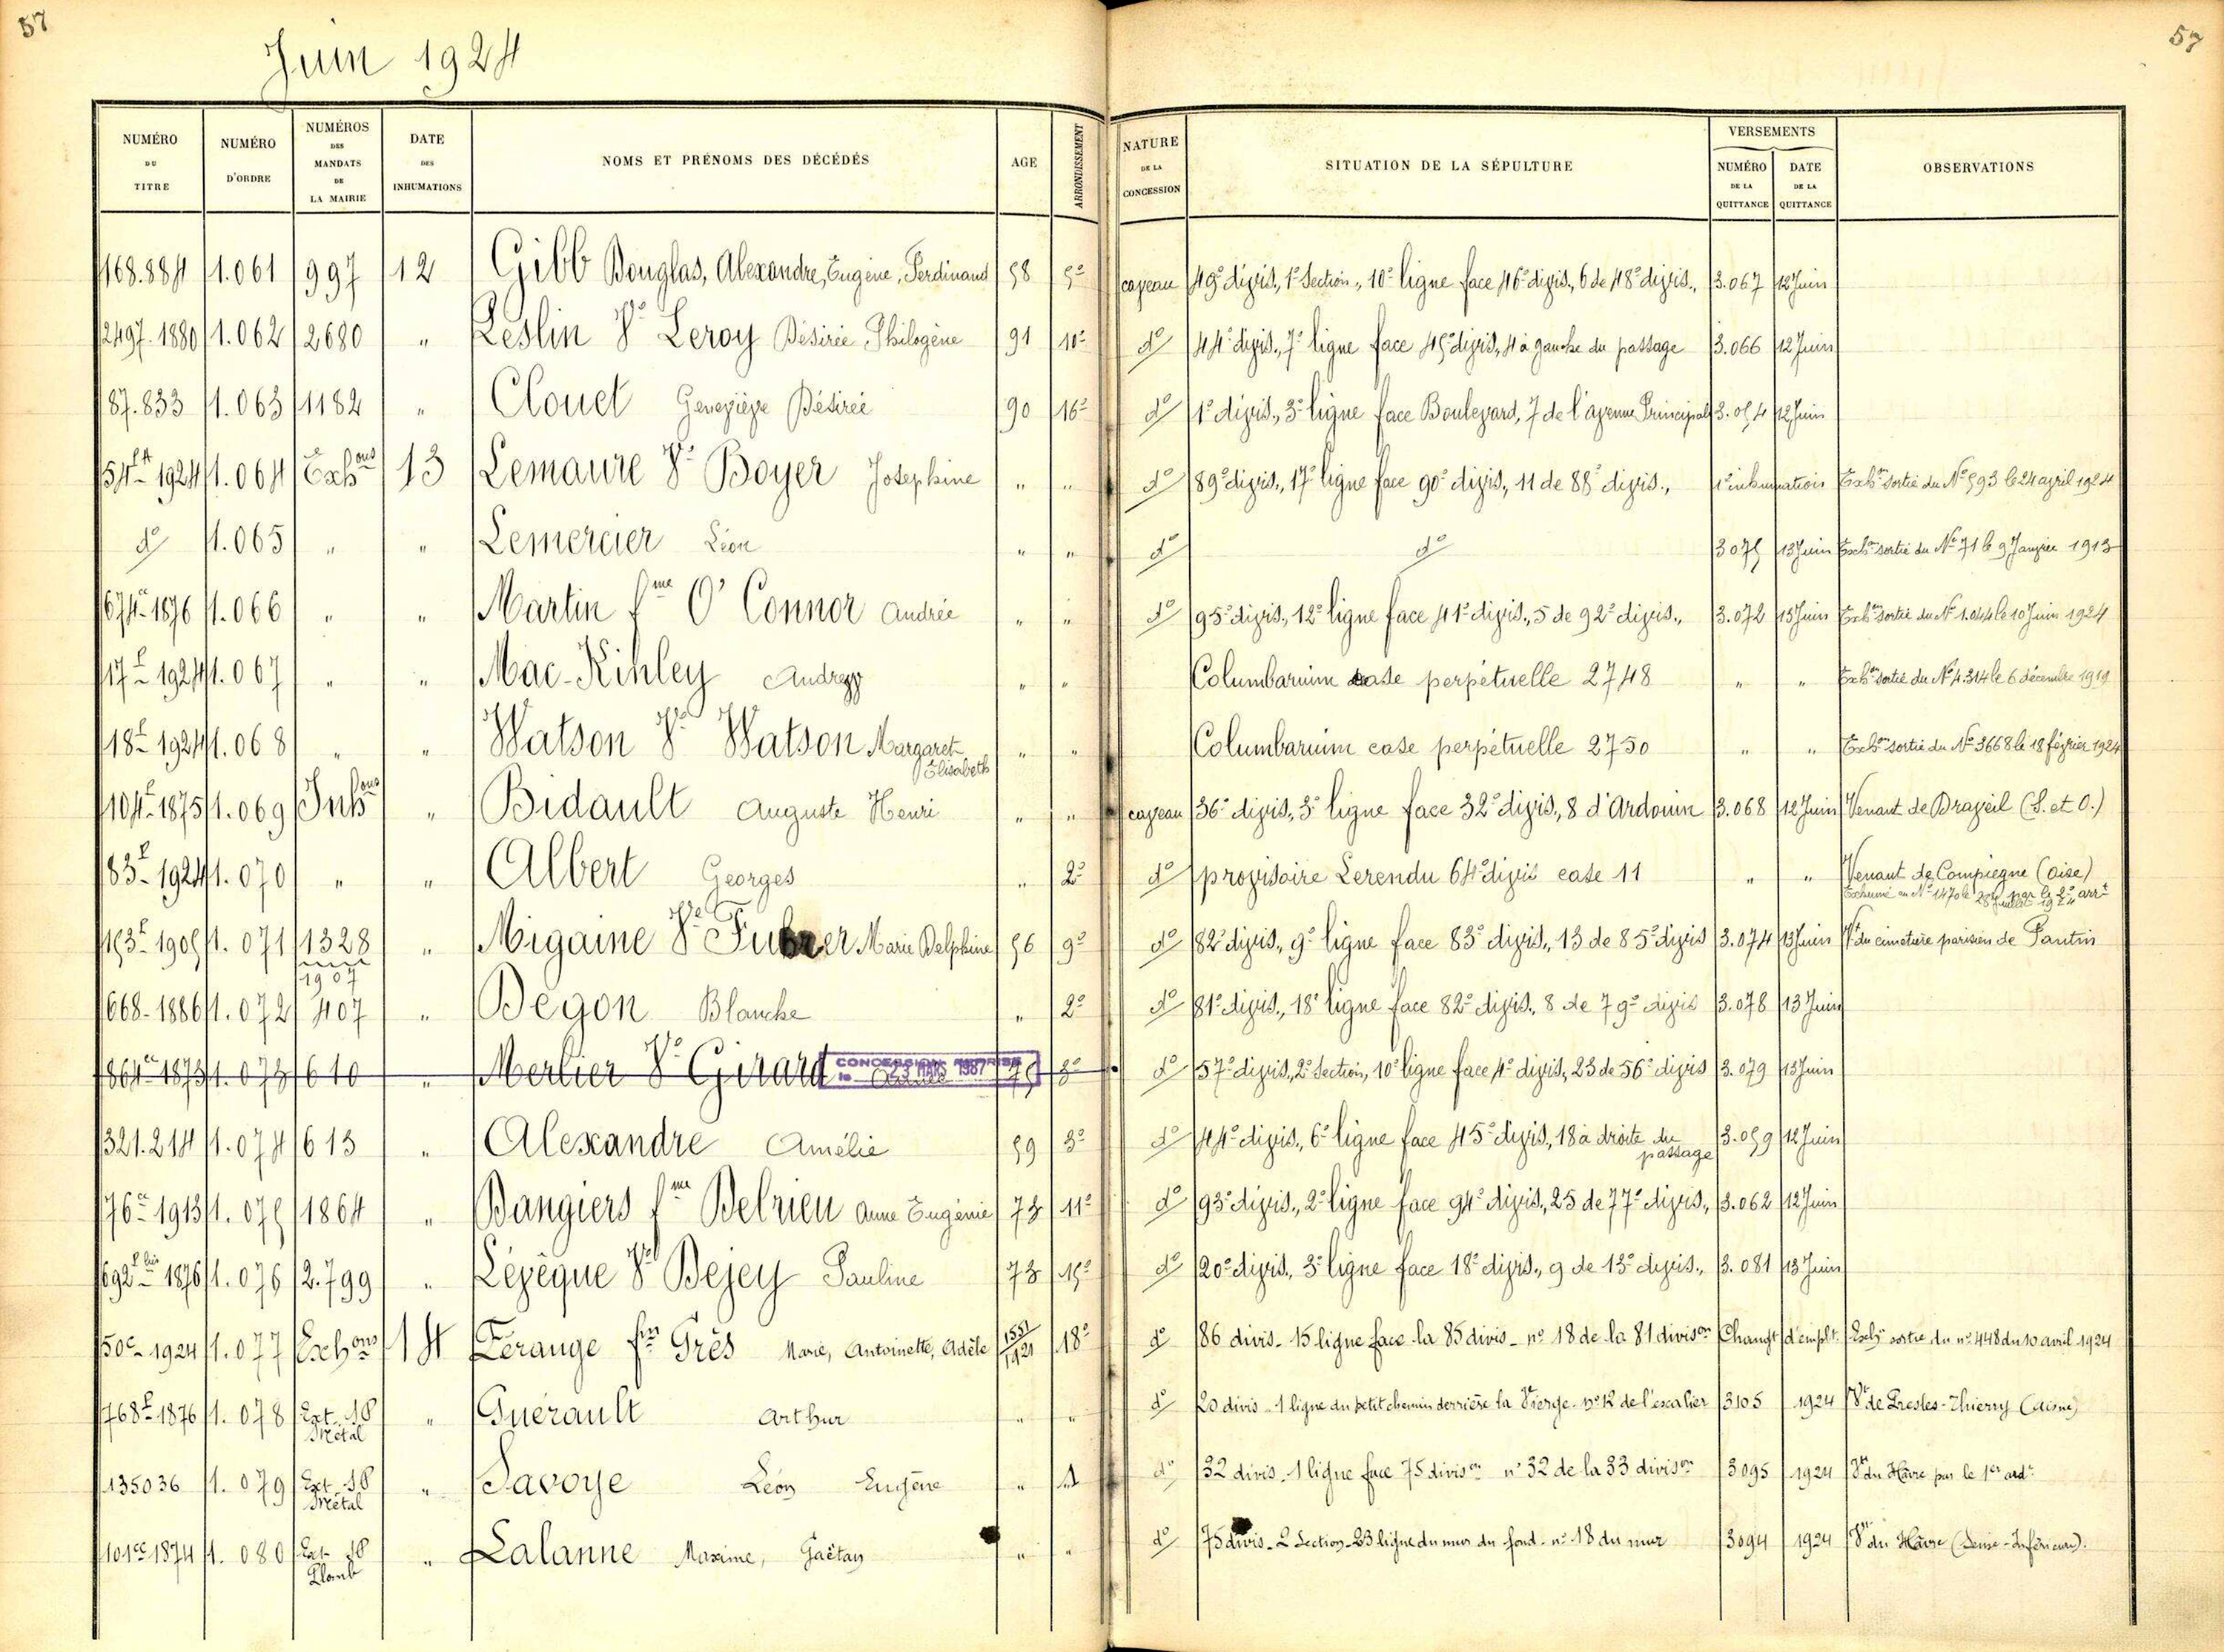 57
57
Juin 1924
NUMÉRO DU TITRE
NUMÉRO D'ORDRE
NUMÉROS DES MANDATS DE LA MAIRIE
DATE DES INHUMATIONS
NOMS ET PRÉNOMS DES DÉCÉDÉS
AGE
ARRONDISSEMENT
NATURE DE LA CONCESSION
SITUATION DE LA SÉPULTURE
VERSEMENTS
NUMÉRO DE LA QUITTANCE
DATE DE LA QUITTANCE
OBSERVATIONS
168.884 1.061 997 12 Gibb Douglas, Alexandre, Eugène, Ferdinand 58 5e caveau 49e divis., 1e Section, 10e ligne face 46e divis., 6 de 48e divis., 3.067 12 Juin
2497-1880 1.062 2680 " Leslin Ve Leroy Désirée Philogène 91 10e do 44e divis., 7e ligne face 45e divis., 4 à gauche du passage 3.066 12 Juin
87.833 1.063 1182 " Clouet Geneviève Désirée 90 16e do 1e divis., 3e ligne face Boulevard, 7 de l'avenue Principale 3.054 12 Juin
54 1924 1.064 Exhons 13 Lemaure Ve Boyer Josephine " " do 89e divis., 17e ligne face 90e divis., 11 de 88e divis., 1e inhumation Exhon sortie du No 593 le 24 avril 1924
do 1.065 " " Lemercier Léon " " do do 3075 13 Juin Exhon sortie du No 71 le 9 Janvier 1913
674-1876 1.066 " " Martin fme O'Connor Andrée " " do 95e divis., 12e ligne face 41e divis., 5 de 92e divis., 3.072 13 Juin Exhon sortie du No 1.044 le 10 Juin 1924
17 1924 1.067 " " Mac-Kinley Andrew " " Columbarium case perpétuelle 2748 " " Exhon sortie du No 4.314 le 6 décembre 1919
18 1924 1.068 " " Watson Ve Watson Margaret Elisabeth " " Columbarium case perpétuelle 2750 " " Exhon sortie du No 3668 le 18 février 1924
104-1875 1.069 Inhons " Bidault Auguste Henri " " caveau 36e divis., 3e ligne face 32e divis., 8 d'Ardouin 3.068 12 Juin Venant de Draveil (S. et O.)
83 1924 1.070 " " Albert Georges " 2e do provisoire Lerendu 64e divis case 11 " " Venant de Compiègne (Oise)
Exhumé au No 1470 le 28 Juillet 1924 par le 2e arrt
153-1905 1.071 1328 1907 " Migaine Ve Fuhrer Marie Delphine 56 9e do 82e divis., 9e ligne face 83e divis., 13 de 85e divis 3.074 13 Juin Vt du cimetière parisien de Pantin
668-1886 1.072 407 " Begon Blanche " 2e do 81e divis., 18e ligne face 82e divis., 8 de 79e divis 3.078 13 Juin
864ce 1873 1.073 610 " Merlier Ve Girard 75 8e do 57e divis., 2e Section, 10e ligne face 4e divis., 23 de 56e divis 3.079 13 Juin
CONCESSION REPRISE
le 23 MARS 1987
321.214 1.074 613 " Alexandre Amélie 59 3e do 44e divis., 6e ligne face 45e divis., 18 à droite du passage 3.059 12 Juin
76ce 1913 1.075 1864 " Bangiers fme Belrieu Anne Eugénie 73 11e do 93e divis., 2e ligne face 94e divis., 25 de 77e divis., 3.062 12 Juin
692 bis 1876 1.076 2.799 " Lévêque Ve Bejey Pauline 73 15e do 20e divis., 3e ligne face 18e divis., 9 de 13e divis., 3.081 13 Juin
50c-1924 1.077 Exhons 14 Ferange fe Grès Marie, Antoinette, Adèle 1551/1921 18e do 86 divis. 15 ligne face la 85 divis - no 18 de la 81 divison Changt d'emplt. Exhon sortie du no 448 du 10 avril 1924
768-1876 1.078 Ext. 18 Métal " Guérault Arthur " " do 20 divis - 1 ligne du petit chemin derrière la Vierge - no 12 de l'escalier 3105 1924 Vt de Presles-Thierry (Aisne)
135036 1.079 Ext. 18 Métal " Savoye Léon Eugène " 1 do 32 divis - 1 ligne face 75 divison no 32 de la 33 divison 3095 1924 Vt du Hâvre par le 1er ardt
101ce 1874 1.080 Ext. 18 Plomb " Lalanne Maxime, Gaëtan " " do 75 divis - 2 Section - 23 ligne du mur du fond - no 18 du mur 3094 1924 Vt du Hâvre (Seine-Inférieure).